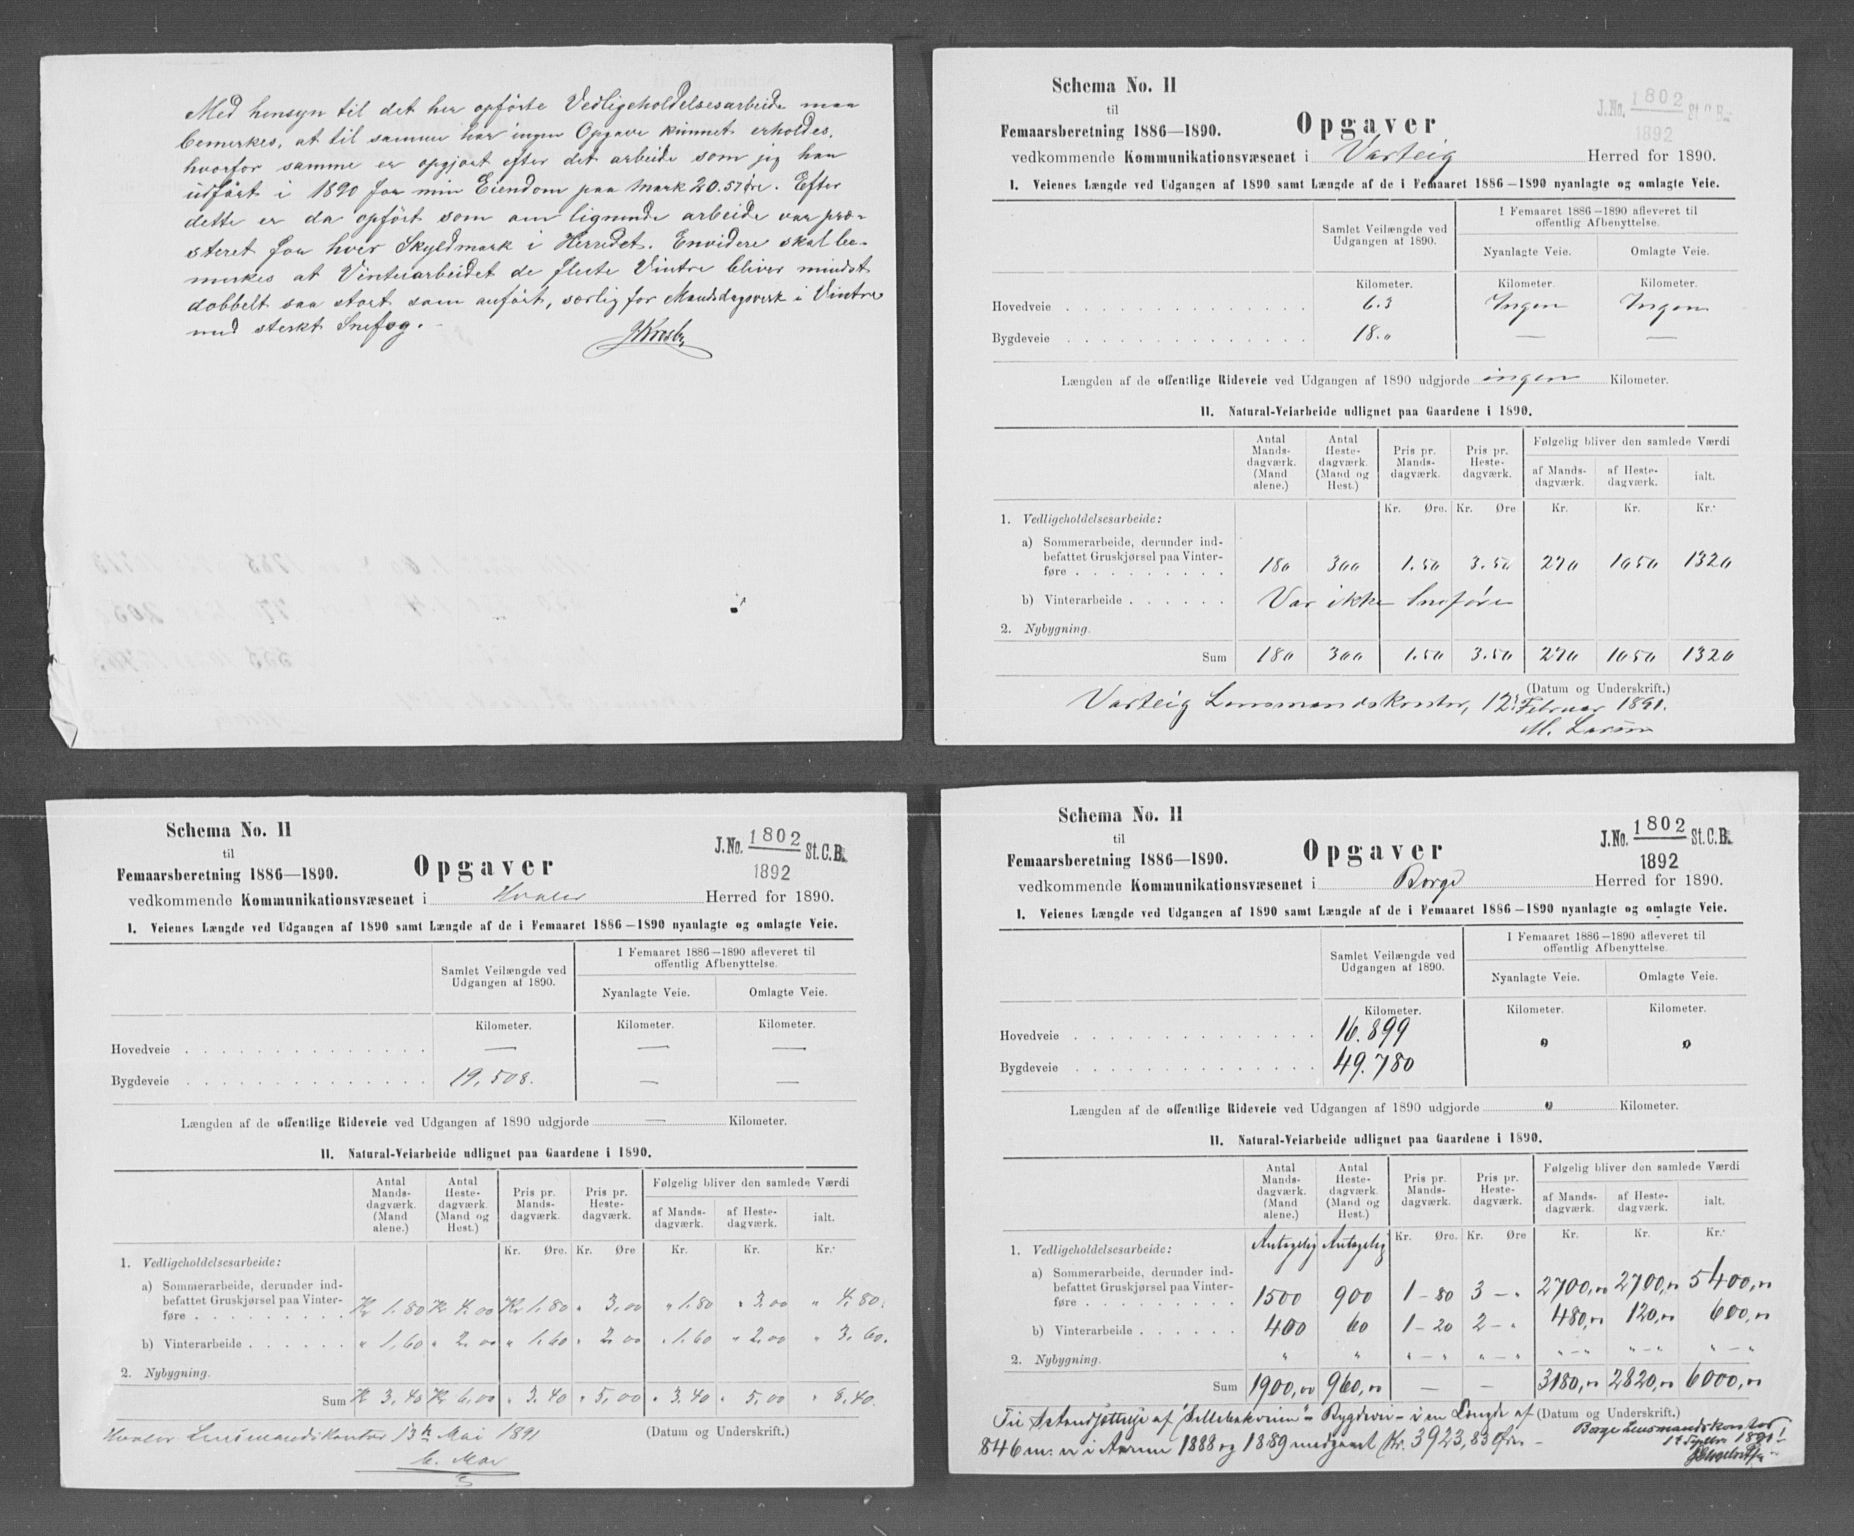 Med hensyn til det her opførte Vedligeholdelsesarbeide maa
bemerkes, at til samme har ingen Opgave kunnet erholdes,
hvorfor samme er opgjort efter det arbeide som jeg han
udført i 1890 for min Eiendom paa Mark 20.57 Øre. Efter
dette er da opført som om lignende arbeide var præ-
steret for hver Skyldmark i Herredet. Envidere skal be-
merkes at Vinterarbeidet de fleste Vintre bliver mindst
dobbelt saa stort som anført, særlig for Mandsdagsverk i Vintre
med sterkt Snefog.
Schema No. II
til
Femaarsberetning 1886—1890.
Opgaver
J.No. 1802 St.C.B.
1892
vedkommende Kommunikationsvæsenet i Varteig Herred for 1890.
I. Veienes Længde ved Udgangen af 1890 samt Længde af de i Femaaret 1886—1890 nyanlagte og omlagte Veie.
Samlet Veilængde ved Udgangen af 1890.
I Femaaret 1886—1890 afleveret til offentlig Afbenyttelse.
Nyanlagte Veie. Omlagte Veie.
Kilometer. Kilometer. Kilometer.
Hovedveie 6.3 Ingen Ingen
Bygdeveie 18.„ — —
Længden af de offentlige Rideveie ved Udgangen af 1890 udgjorde ingen Kilometer.
II. Natural-Veiarbeide udlignet paa Gaardene i 1890.
Antal Mands-dagværk. (Mand alene.) Antal Heste-dagværk. (Mand og Hest.) Pris pr. Mands-dagværk. Pris pr. Heste-dagværk. Følgelig bliver den samlede Værdi
af Mands-dagværk. af Heste-dagværk. ialt.
Kr. Øre. Kr. Øre Kr. Kr. Kr.
1. Vedligeholdelsesarbeide:
a) Sommerarbeide, derunder ind-
befattet Gruskjørsel paa Vinter-
føre 180 300 1.50 3.50 270 1050 1320
b) Vinterarbeide Var ikke Sneføre
2. Nybygning.
Sum 180 300 1.50 3.50 270 1050 1320
(Datum og Underskrift.)
Varteig Lensmandskontor, 12 Februar 1891.
M. Larsen
Schema No. II
til
Femaarsberetning 1886—1890.
Opgaver
J.No. 1802 St.C.B.
1892
vedkommende Kommunikationsvæsenet i Hvaler Herred for 1890.
I. Veienes Længde ved Udgangen af 1890 samt Længde af de i Femaaret 1886—1890 nyanlagte og omlagte Veie.
Samlet Veilængde ved Udgangen af 1890.
I Femaaret 1886—1890 afleveret til offentlig Afbenyttelse.
Nyanlagte Veie. Omlagte Veie.
Kilometer. Kilometer. Kilometer.
Hovedveie — — —
Bygdeveie 19,508. — —
Længden af de offentlige Rideveie ved Udgangen af 1890 udgjorde — Kilometer.
II. Natural-Veiarbeide udlignet paa Gaardene i 1890.
Antal Mands-dagværk. (Mand alene.) Antal Heste-dagværk. (Mand og Hest.) Pris pr. Mands-dagværk. Pris pr. Heste-dagværk. Følgelig bliver den samlede Værdi
af Mands-dagværk. af Heste-dagværk. ialt.
Kr. Øre. Kr. Øre Kr. Kr. Kr.
1. Vedligeholdelsesarbeide:
a) Sommerarbeide, derunder ind-
befattet Gruskjørsel paa Vinter-
føre Kr 1.80 Kr 4.00 Kr 1.80 „ 3,00 „ 1.80 „ 3.00 „ 4.80.
b) Vinterarbeide „ 1,60 „ 2,00 „ 1.60 „ 2.00 „ 1.60 „ 2.00 „ 3.60.
2. Nybygning.
Sum Kr 3.40 Kr 6,00 „ 3.40 „ 5,00 „ 3.40 „ 5,00 „ 8,40.
Hvaler Lensmandskontor 13de Mai 1891 (Datum og Underskrift.)
Schema No. II
til
Femaarsberetning 1886—1890.
Opgaver
J.No. 1802 St.C.B.
1892
vedkommende Kommunikationsvæsenet i Borge Herred for 1890.
I. Veienes Længde ved Udgangen af 1890 samt Længde af de i Femaaret 1886—1890 nyanlagte og omlagte Veie.
Samlet Veilængde ved Udgangen af 1890.
I Femaaret 1886—1890 afleveret til offentlig Afbenyttelse.
Nyanlagte Veie. Omlagte Veie.
Kilometer. Kilometer. Kilometer.
Hovedveie 16.899 „ „
Bygdeveie 49.780
Længden af de offentlige Rideveie ved Udgangen af 1890 udgjorde „ Kilometer.
II. Natural-Veiarbeide udlignet paa Gaardene i 1890.
Antal Mands-dagværk. (Mand alene.) Antal Heste-dagværk. (Mand og Hest.) Pris pr. Mands-dagværk. Pris pr. Heste-dagværk. Følgelig bliver den samlede Værdi
af Mands-dagværk. af Heste-dagværk. ialt.
Antagelig Antagelig Kr. Øre. Kr. Øre Kr. Kr. Kr.
1. Vedligeholdelsesarbeide:
a) Sommerarbeide, derunder ind-
befattet Gruskjørsel paa Vinter-
føre 1500 900 1 - 80 3 - „ 2700,„ 2700,„ 5400,„
b) Vinterarbeide 400 60 1 - 20 2 - „ 480,„ 120,„ 600,„
2. Nybygning. „ „ „ - „ „ - „ „ - „ „ - „ „ - „
Sum 1900,00 960,„ — — 3180,„ 2820,„ 6000,„
Til Istandsættelse af Bygdevei i en Længde af (Datum og Underskrift.)
846 m. er i Aarene 1888 og 1889 medgaaet Kr. 3923,83 Øre
Borge Lensmandskontor
1891